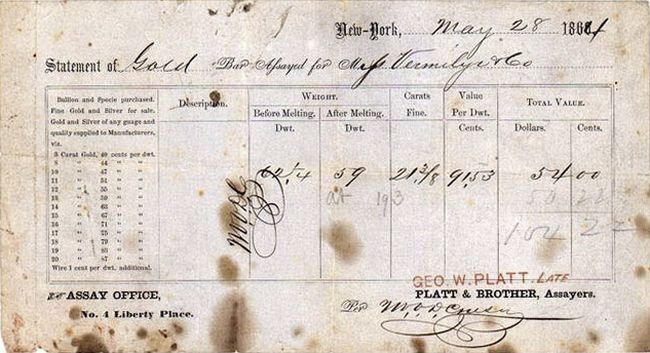 New-York, May 28 1864
Statement of Gold Bar Assayed for Messrs Vermilye & Co
Bullion and Specie purchased.
Fine Gold and Silver for sale.
Gold and Silver of any guage and
quality supplied to Manufacturers,
viz.
8 Carat Gold, 40 cents per dwt.
8 " " 44 " "
10 " " 47 " "
11 " " 51 " "
12 " " 55 " "
13 " " 59 " "
14 " " 63 " "
15 " " 67 " "
16 " " 71 " "
17 " " 75 " "
18 " " 79 " "
19 " " 83 " "
20 " " 87 " "
Wire 1 cent per dwt. additional.
Description.
Weight.
Before Melting. After Melting.
Dwt. Dwt.
Carats Fine.
Value Per Dwt.
Cents.
Total Value.
Dollars. Cents.
62 1/4 59 21 3/8 91.53 54 00
193
104 22
GEO. W. PLATT, LATE
ASSAY OFFICE,
No. 4 Liberty Place.
PLATT & BROTHER, Assayers.
Per